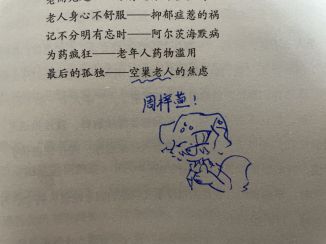 老人身心不舒服——抑郁症惹的祸
记不分明有忘时——阿尔茨海默病
为药疯狂——老年人药物滥用
最后的孤独——空巢老人的焦虑
周梓萱！